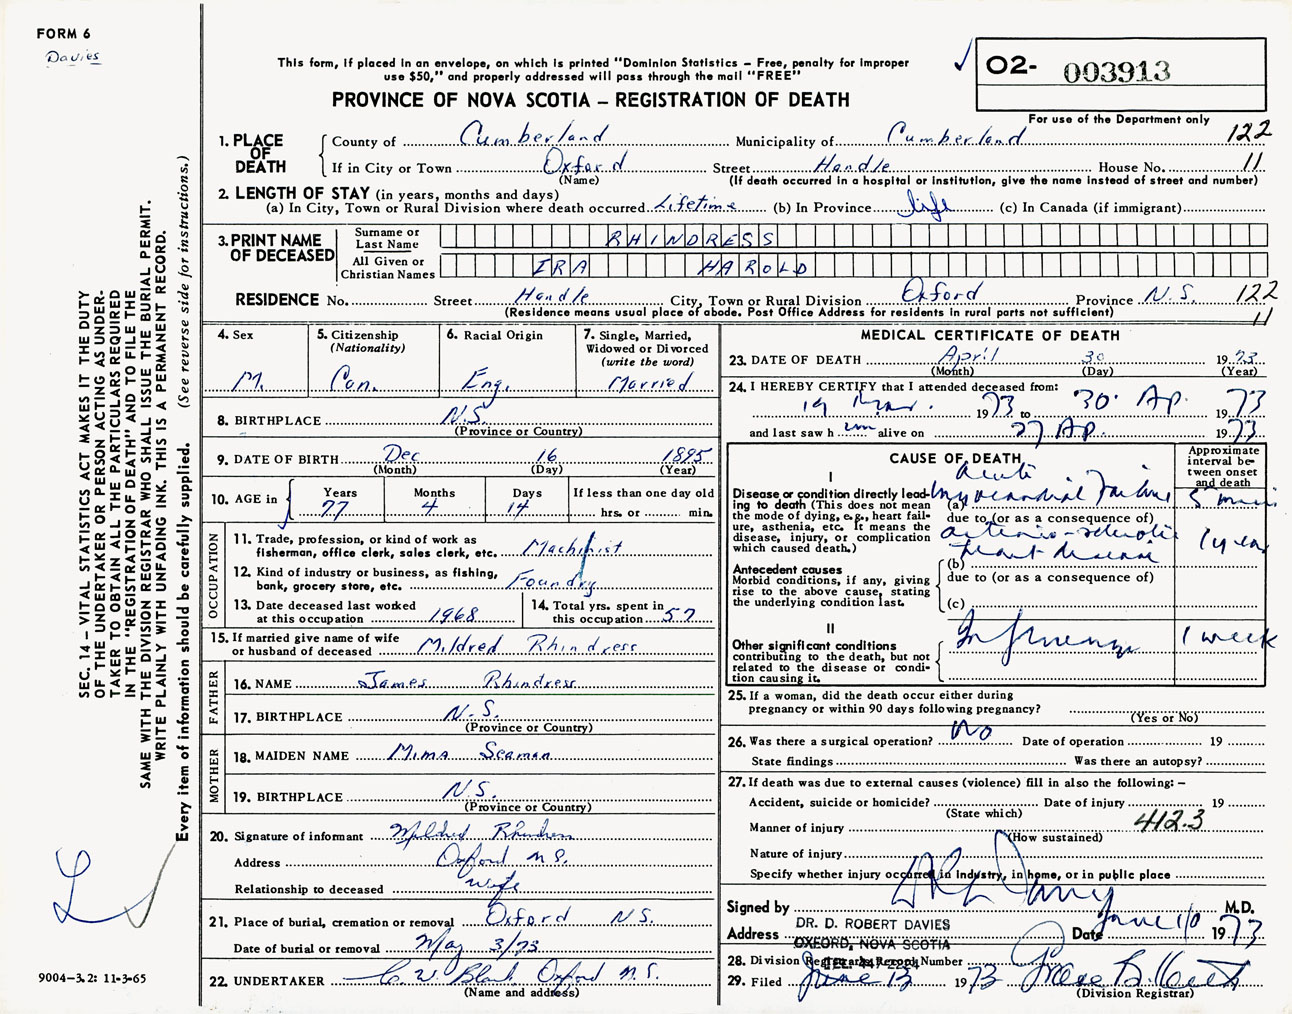 FORM 6
Davies
This form, if placed in an envelope, on which is printed "Dominion Statistics – Free, penalty for improper
use $50," and properly addressed will pass through the mail "FREE"
PROVINCE OF NOVA SCOTIA – REGISTRATION OF DEATH
O2- 003913
For use of the Department only
1. PLACE OF DEATH County of Cumberland Municipality of Cumberland 122
If in City or Town Oxford Street Handle House No. 11
(Name) (If death occurred in a hospital or institution, give the name instead of street and number)
2. LENGTH OF STAY (in years, months and days)
(a) In City, Town or Rural Division where death occurred Lifetime (b) In Province life (c) In Canada (if immigrant)
3. PRINT NAME OF DECEASED Surname or Last Name RHINDRESS
All Given or Christian Names IRA HAROLD
RESIDENCE No. Street Handle City, Town or Rural Division Oxford Province N.S. 122
(Residence means usual place of abode. Post Office Address for residents in rural parts not sufficient) 11
4. Sex M.
5. Citizenship (Nationality) Can.
6. Racial Origin Eng.
7. Single, Married, Widowed or Divorced (write the word) Married
8. BIRTHPLACE N.S.
(Province or Country)
9. DATE OF BIRTH Dec 16 1895
(Month) (Day) (Year)
10. AGE in Years 77 Months 4 Days 14 If less than one day old hrs. or min.
OCCUPATION
11. Trade, profession, or kind of work as fisherman, office clerk, sales clerk, etc. Machinist
12. Kind of industry or business, as fishing, bank, grocery store, etc. Foundry
13. Date deceased last worked at this occupation 1968
14. Total yrs. spent in this occupation 57
15. If married give name of wife or husband of deceased Mildred Rhindress
FATHER
16. NAME James Rhindress
17. BIRTHPLACE N.S.
(Province or Country)
MOTHER
18. MAIDEN NAME Mima Seaman
19. BIRTHPLACE N.S.
(Province or Country)
20. Signature of informant Mildred Rhindress
Address Oxford N.S.
Relationship to deceased Wife
21. Place of burial, cremation or removal Oxford N.S.
Date of burial or removal May 3/73
22. UNDERTAKER C. W. Black Oxford N.S.
(Name and address)
MEDICAL CERTIFICATE OF DEATH
23. DATE OF DEATH April 30 1973
(Month) (Day) (Year)
24. I HEREBY CERTIFY that I attended deceased from:
19 Mar. 1973 to 30 Ap. 1973
and last saw him alive on 27 Ap. 1973
CAUSE OF DEATH
Approximate interval between onset and death
I
Disease or condition directly leading to death (This does not mean the mode of dying, e.g., heart failure, asthenia, etc. It means the disease, injury, or complication which caused death.)
(a) Acute Myocardial Failure 5 min
due to (or as a consequence of)
(b) arterio-sclerotic heart disease 1 year
Antecedent causes
Morbid conditions, if any, giving rise to the above cause, stating the underlying condition last.
due to (or as a consequence of)
(c)
II
Other significant conditions
contributing to the death, but not related to the disease or condition causing it.
Influenza 1 week
25. If a woman, did the death occur either during
pregnancy or within 90 days following pregnancy?
(Yes or No)
26. Was there a surgical operation? No Date of operation 19
State findings Was there an autopsy?
27. If death was due to external causes (violence) fill in also the following: –
Accident, suicide or homicide? Date of injury 19
(State which)
Manner of injury 412.3
(How sustained)
Nature of injury
Specify whether injury occurred in Industry, in home, or in public place
Signed by M.D.
DR. D. ROBERT DAVIES
Address OXFORD, NOVA SCOTIA Date June 1/0 1973
TEL. 447-2224
28. Division Registrar's Record Number
29. Filed June 13 1973
(Division Registrar)
SEC. 14 – VITAL STATISTICS ACT MAKES IT THE DUTY
OF THE UNDERTAKER OR PERSON ACTING AS UNDER-
TAKER TO OBTAIN ALL THE PARTICULARS REQUIRED
IN THE "REGISTRATION OF DEATH" AND TO FILE THE
SAME WITH THE DIVISION REGISTRAR WHO SHALL ISSUE THE BURIAL PERMIT.
WRITE PLAINLY WITH UNFADING INK. THIS IS A PERMANENT RECORD.
Every item of information should be carefully supplied. (See reverse side for instructions.)
9004-3.2: 11-3-65